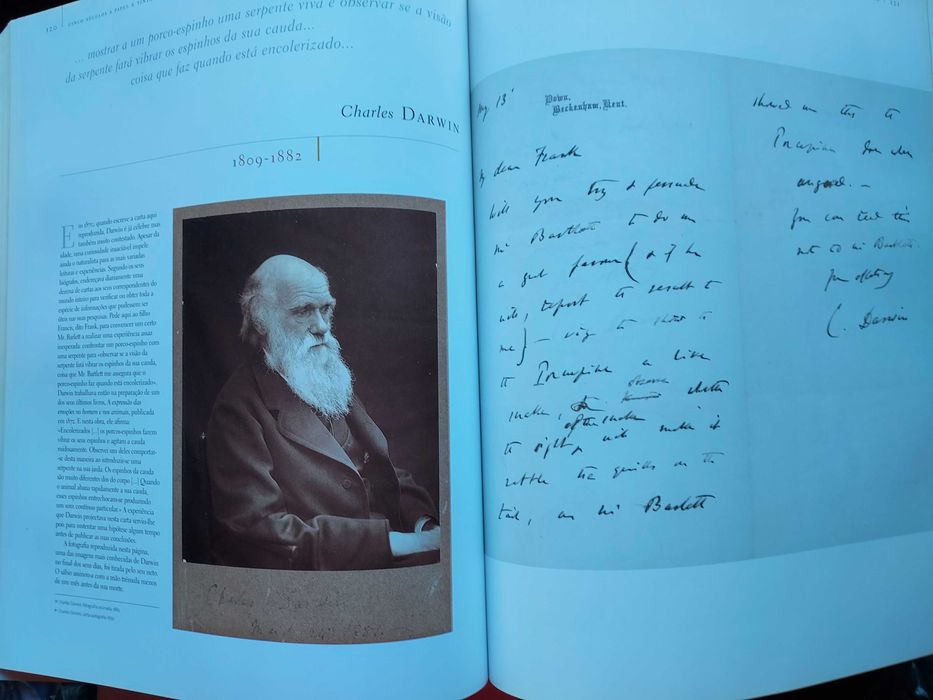 320 | CINCO SÉCULOS A PAPEL E
... mostrar a um porco-espinho uma serpente viva e observar se a visão
da serpente fará vibrar os espinhos da sua cauda...
coisa que faz quando está encolerizado...
Charles DARWIN
1809-1882
Em 1870, quando escreve a carta aqui
reproduzida, Darwin é já célebre mas
também muito contestado. Apesar da
idade, uma curiosidade insaciável impele
ainda o naturalista para as mais variadas
leituras e experiências. Segundo os seus
biógrafos, endereçava diariamente uma
dezena de cartas aos seus correspondentes do
mundo inteiro para verificar ou obter toda a
espécie de informações que pudessem ser
úteis nas suas pesquisas. Pede aqui ao filho
Francis, dito Frank, para convencer um certo
Mr. Barlett a realizar uma experiência assaz
inesperada: confrontar um porco-espinho com
uma serpente para «observar se a visão da
serpente fará vibrar os espinhos da sua cauda,
coisa que Mr. Bartlett me assegura que o
porco-espinho faz quando está encolerizado».
Darwin trabalhava então na preparação de um
dos seus últimos livros, A expressão das
emoções no homem e nos animais, publicada
em 1872. E nesta obra, ele afirma:
«Encolerizados [...] os porcos-espinhos fazem
vibrar os seus espinhos e agitam a cauda
ruidosamente. Observei um deles comportar-
-se desta maneira ao introduzir-se uma
serpente na sua jaula. Os espinhos da cauda
são muito diferentes dos do corpo [...] Quando
o animal abana rapidamente a sua cauda,
esses espinhos entrechocam-se produzindo
um som contínuo particular.» A experiência
que Darwin projectava nesta carta serviu-lhe
pois para sustentar uma hipótese algum tempo
antes de publicar as suas conclusões.
A fotografia reproduzida nesta página,
uma das imagens mais conhecidas de Darwin
no final dos seus dias, foi tirada pelo seu neto.
O sábio assinou-a com a mão trémula menos
de um mês antes da sua morte.
Charles Darwin, fotografia assinada
Charles Darwin, carta autógrafa
Charles Darwin
13
Down,
Beckenham, Kent.
My dear Frank
Will you try & persuade
Mr Bartlett to do me
a great favour (& if he
will, report the result to
me) — viz to show to
the Porcupine a live
snake, & observe whether
the sight of the snake will make it
rattle the quills on its
tail, as Mr Bartlett
showed me this the
Porcupine does when
angered. —
You can tell this
note to Mr Bartlett.
C. Darwin